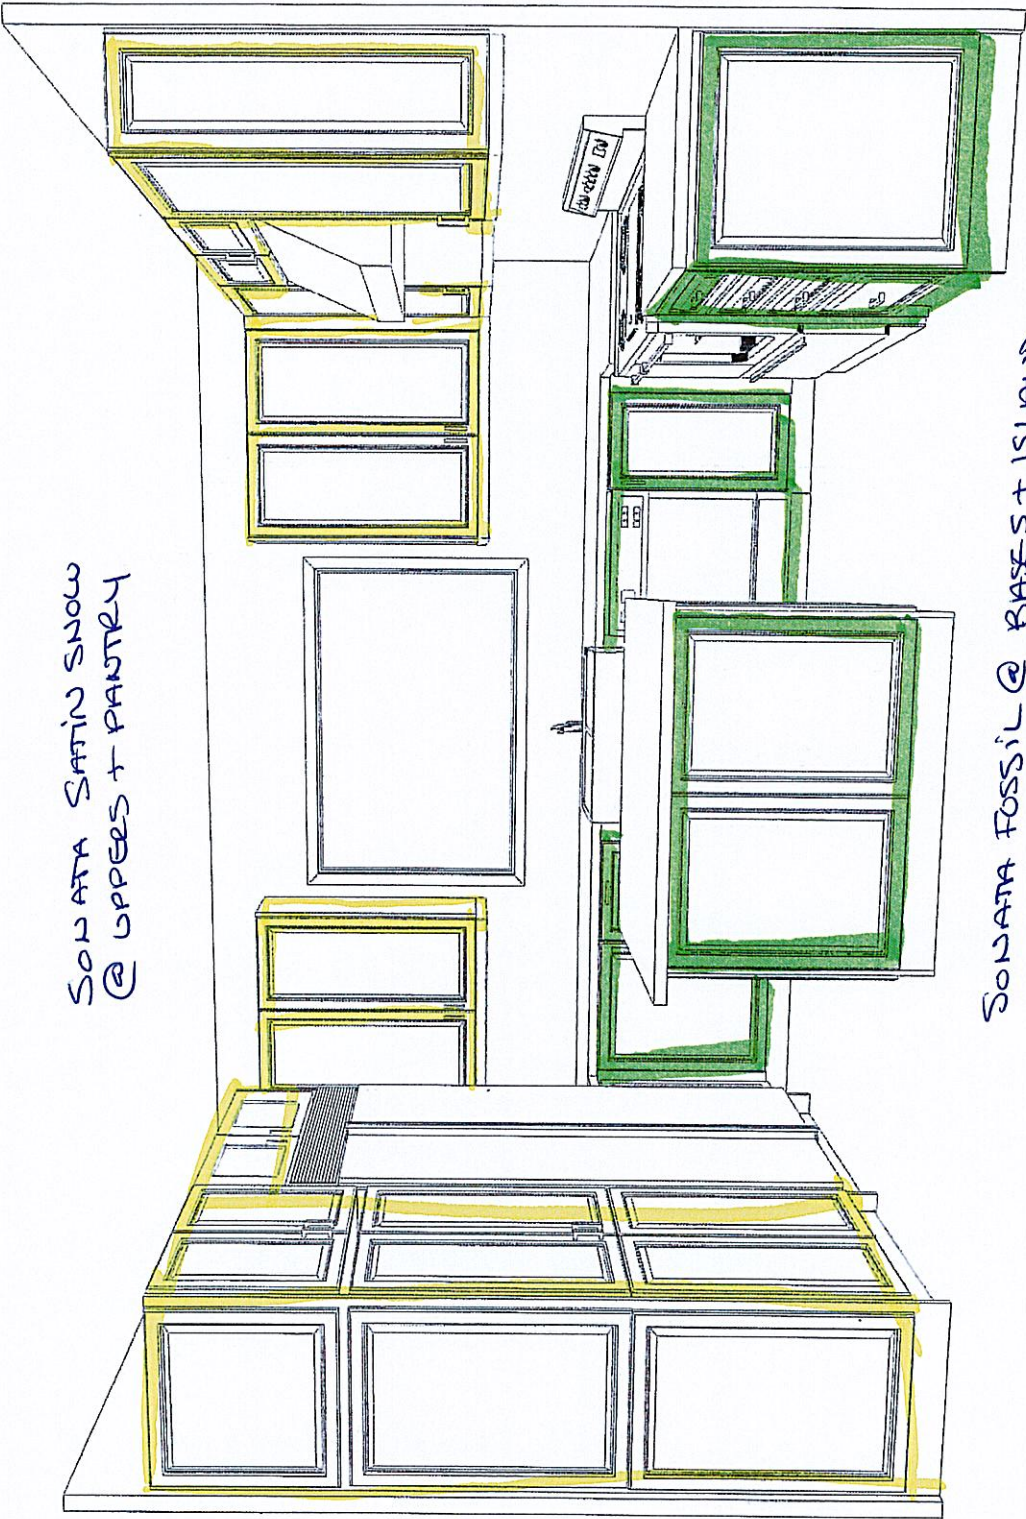 SONATA SATIN SNOW
@ UPPERS + PANTRY
SONATA FOSSIL @ BASES + ISLAND